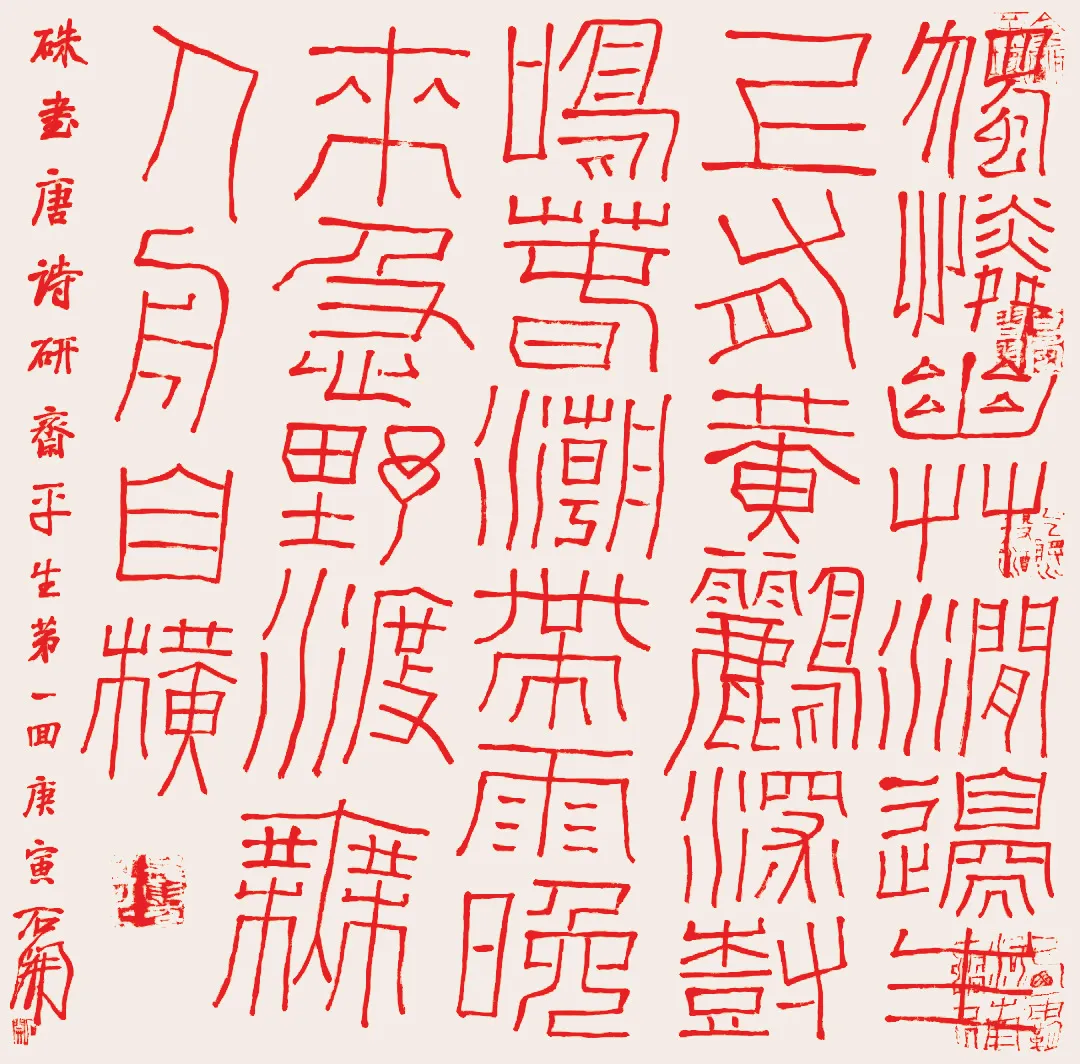 獨憐幽草澗邊生
上有黃鸝深樹
鳴春潮帶雨晚
來急野渡無
人舟自橫
硃書唐詩研齋平生第一回庚寅石開